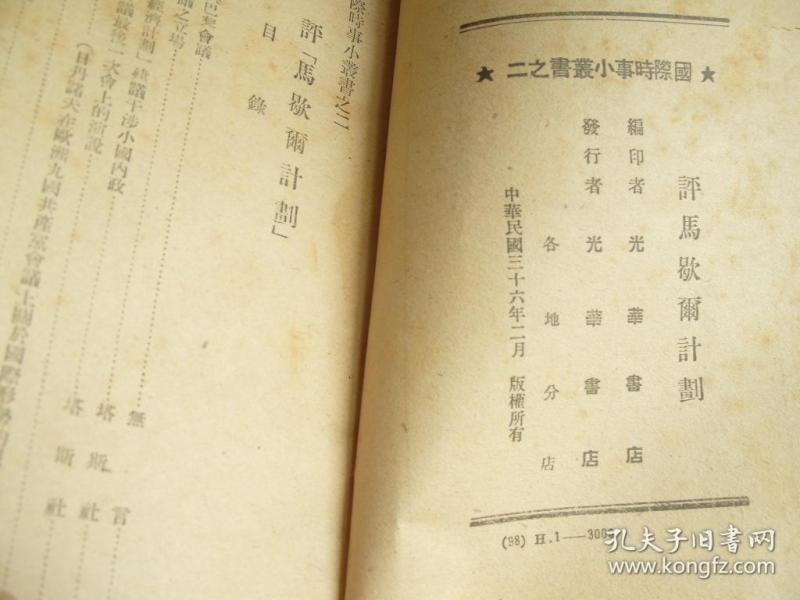 ★ 國際時事小叢書之二 ★
評馬歇爾計劃
編印者 光華書店
發行者 光華書店
各地分店
中華民國三十六年二月 版權所有
(98) H.1——300
際時事小叢書之二
評「馬歇爾計劃」
目錄
巴黎會議
之立場
無言
經濟計劃」建議干涉小國內政
塔斯社
議最後一次會上的演說
塔斯社
(日丹諾夫在歐洲九國共產黨會議上關於國際形勢的
孔夫子旧书网
www.kongfz.com